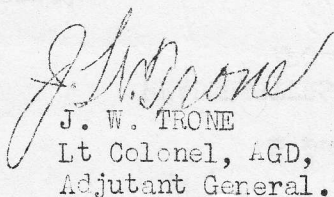 J. W. Trone
J. W. TRONE
Lt Colonel, AGD,
Adjutant General.